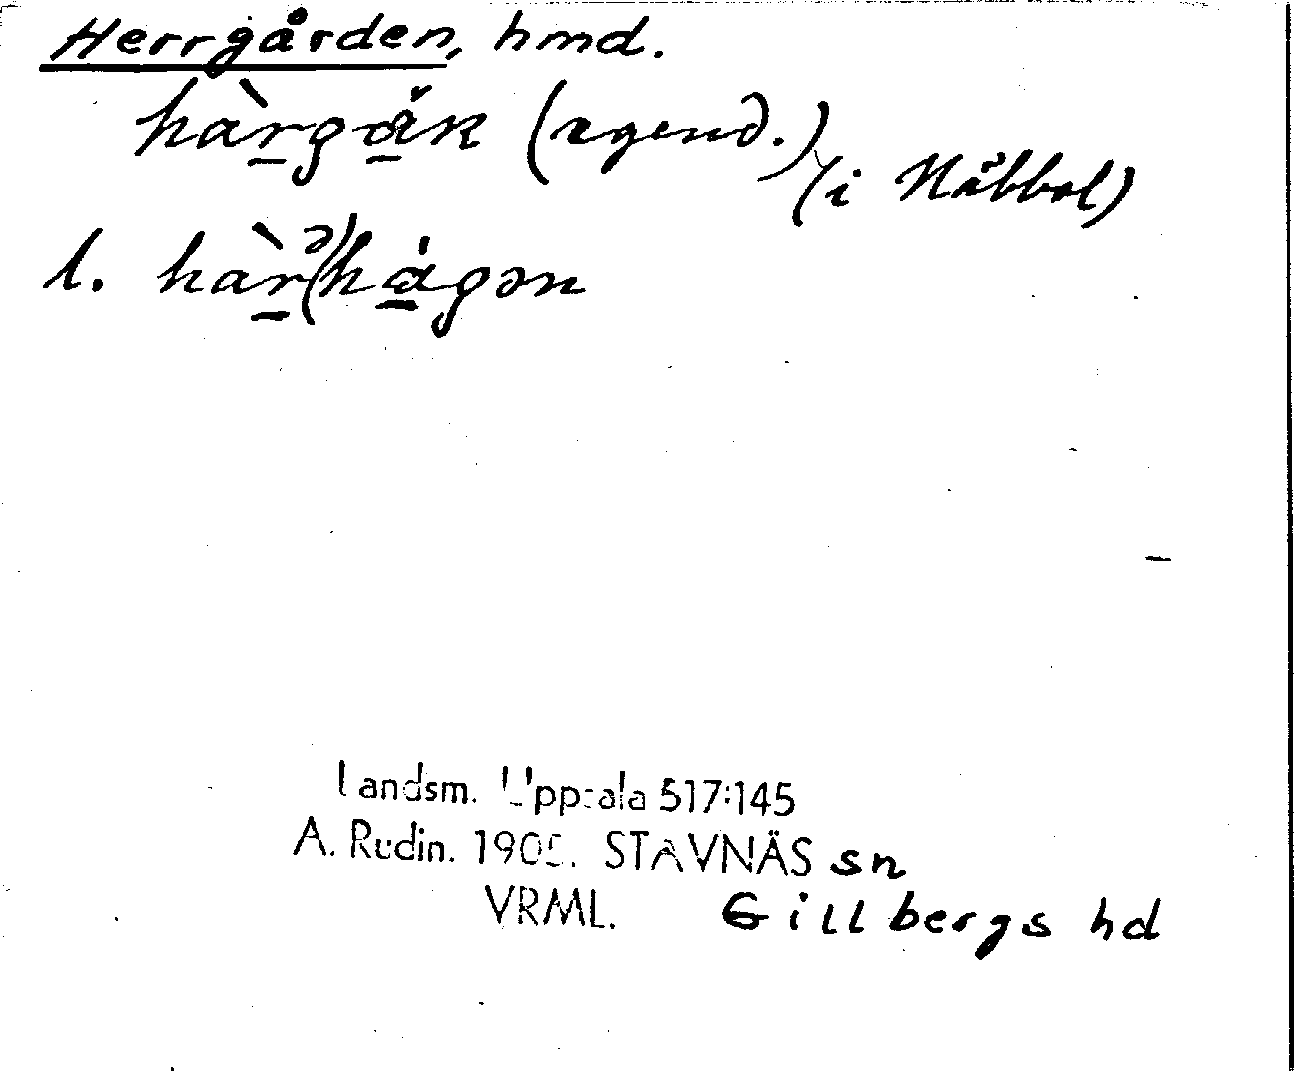 Herrgården, hmd.
hàrgåk (ägend.) (i Näbbol)
l. hàr(ə)hágən
Landsm. Uppsala 517:145
A. Rudin. 1905. STAVNÄS sn
VRML. Gillbergs hd